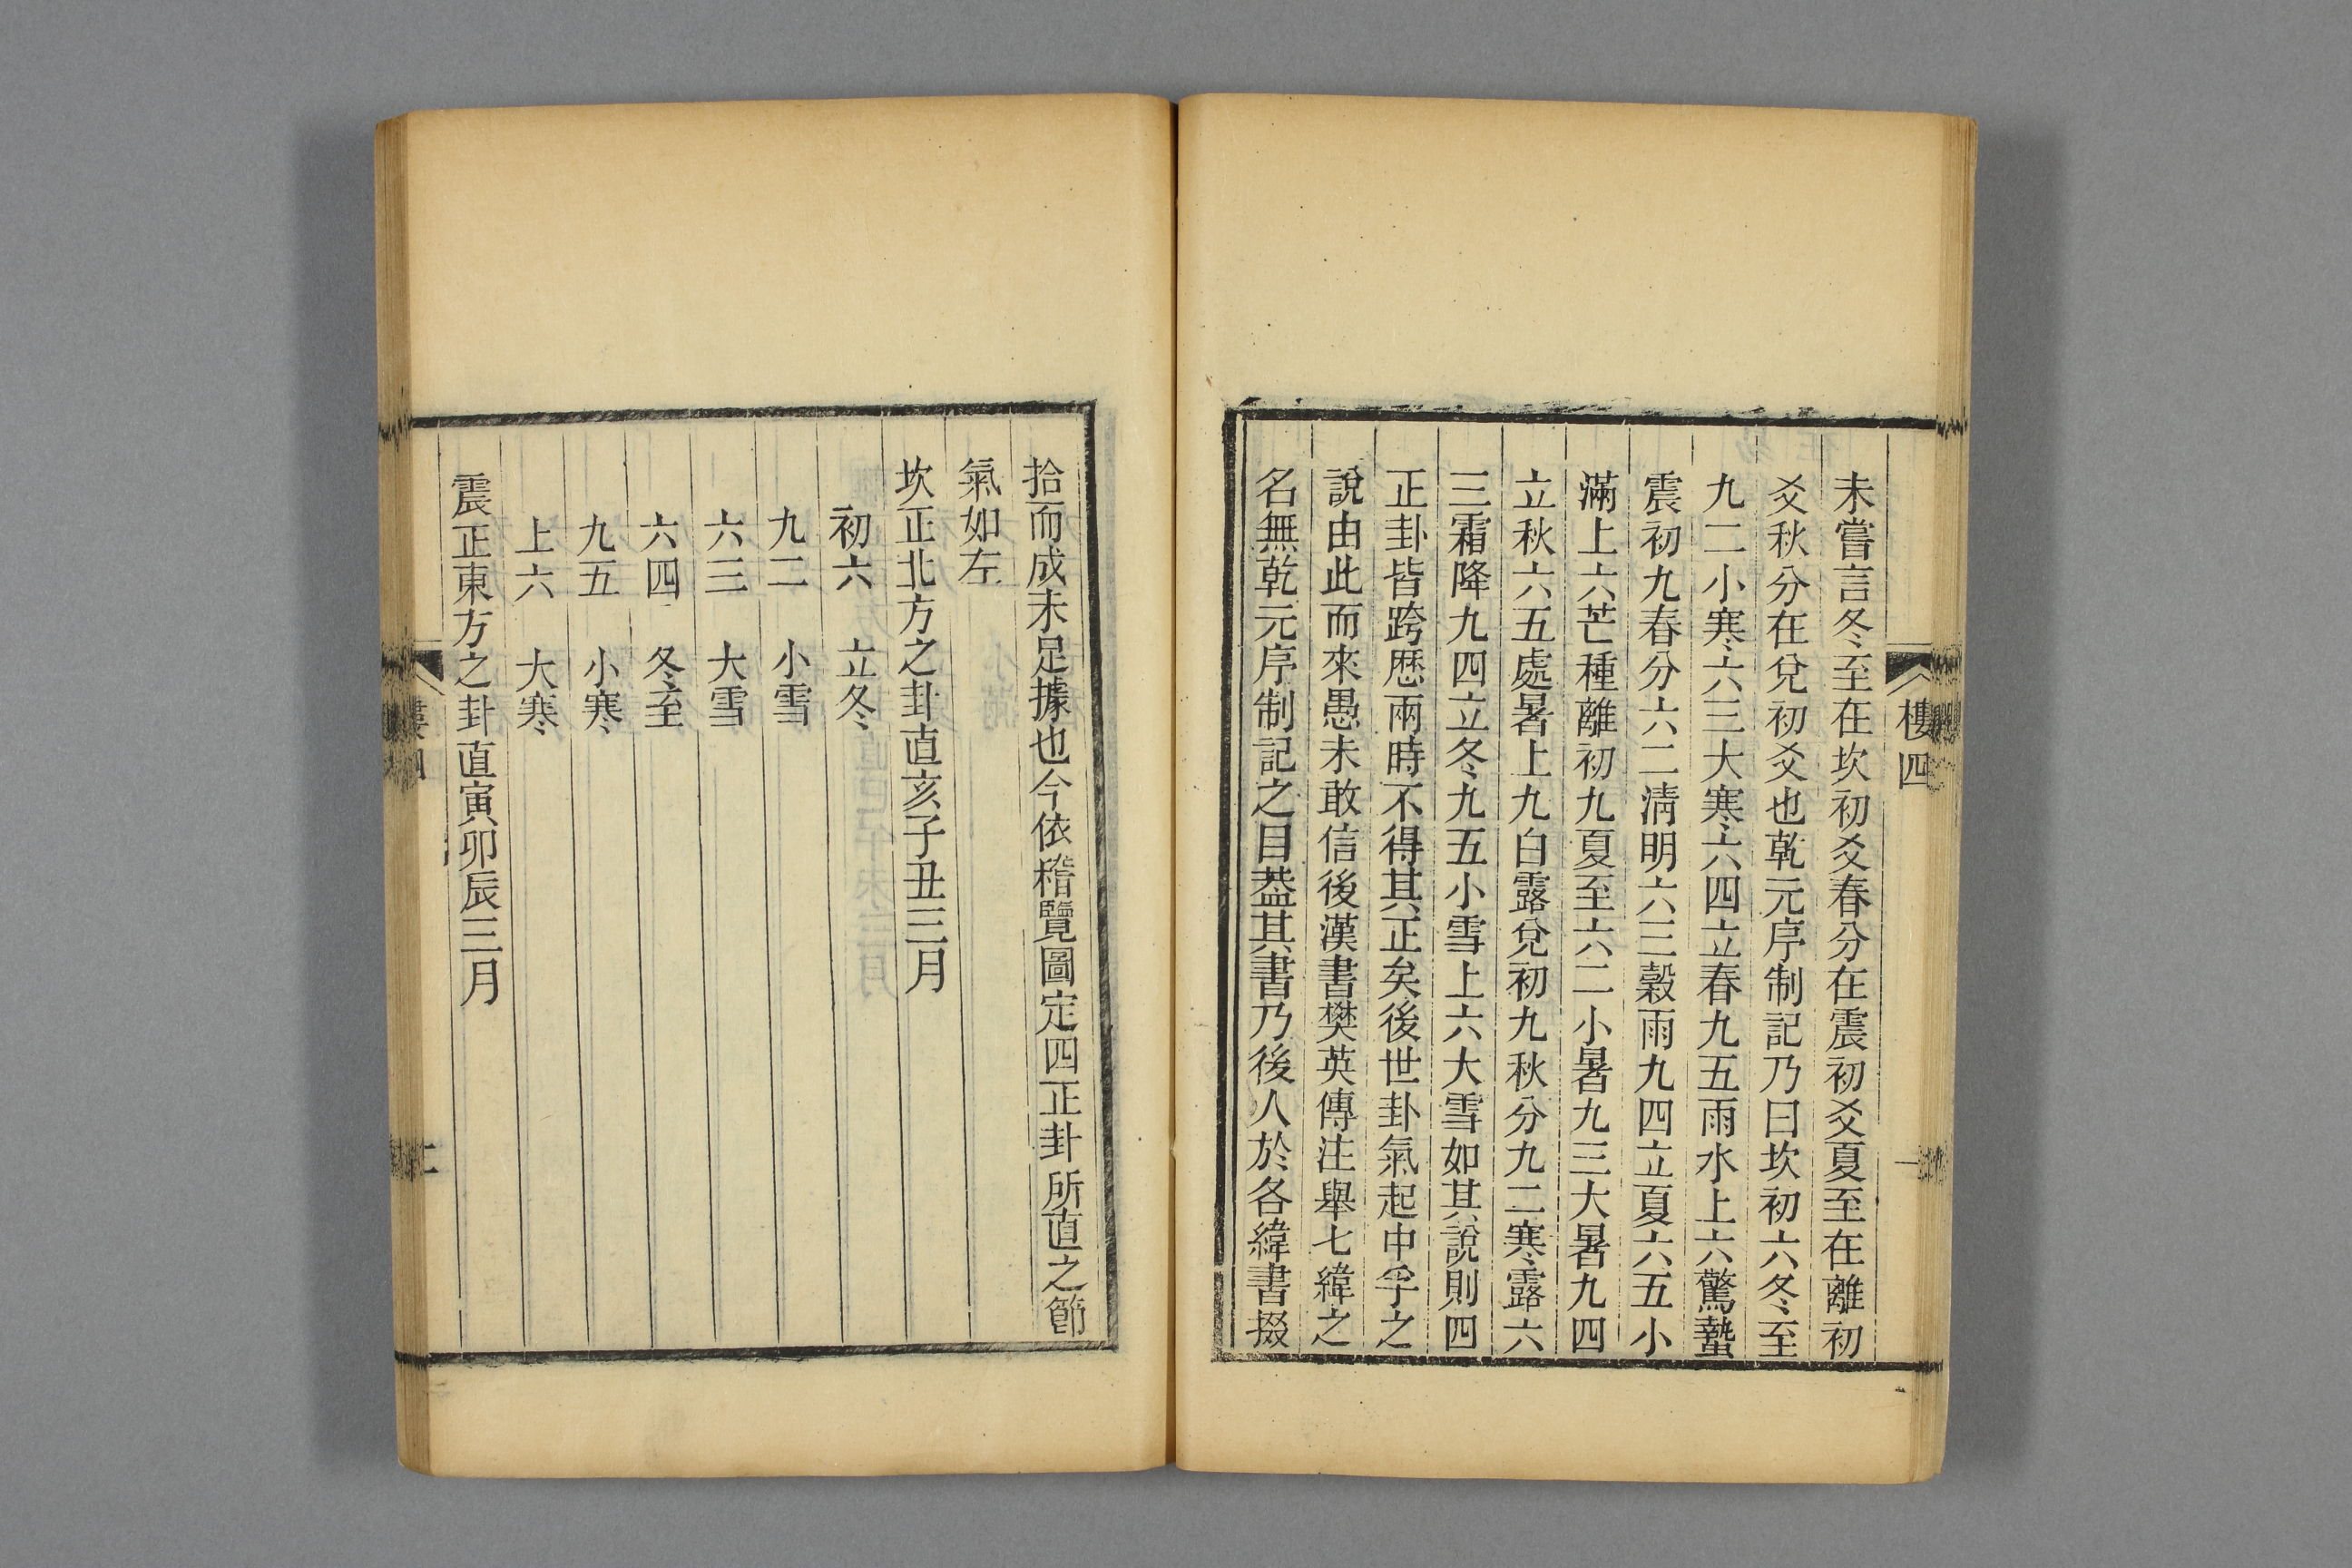 樓四
一
未嘗言冬至在坎初爻春分在震初爻夏至在離初
爻秋分在兌初爻也乾元序制記乃曰坎初六冬至
九二小寒六三大寒六四立春九五雨水上六驚蟄
震初九春分六二淸明六三穀雨九四立夏六五小
滿上六芒種離初九夏至六二小暑九三大暑九四
立秋六五處暑上九白露兌初九秋分九二寒露六
三霜降九四立冬九五小雪上六大雪如其說則四
正卦皆跨厯兩時不得其正矣後世卦氣起中孚之
說由此而來愚未敢信後漢書樊英傳注舉七緯之
名無乾元序制記之目葢其書乃後人於各緯書掇
拾而成未足據也今依稽覽圖定四正卦所直之節
氣如左
坎正北方之卦直亥子丑三月
初六 立冬
九二 小雪
六三 大雪
六四 冬至
九五 小寒
上六 大寒
震正東方之卦直寅卯辰三月